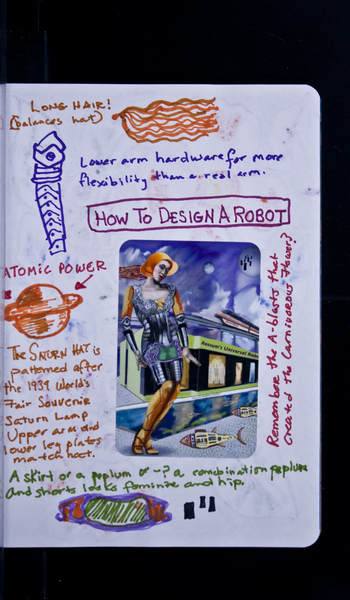 LONG HAIR!
(balances hat)
Lower arm hardware for more
flexibility than a real arm.
HOW TO DESIGN A ROBOT
ATOMIC POWER
The SATURN HAT is
patterned after
the 1939 World's
Fair Souvenir
Saturn Lamp
Upper arm and
lower leg plates
match hat.
Rossum's Universal Robots
Remember the A-blasts that
created the Carnivorous Flowers?
A skirt or a peplum or -? a combination peplum
and shorts looks feminine and hip.